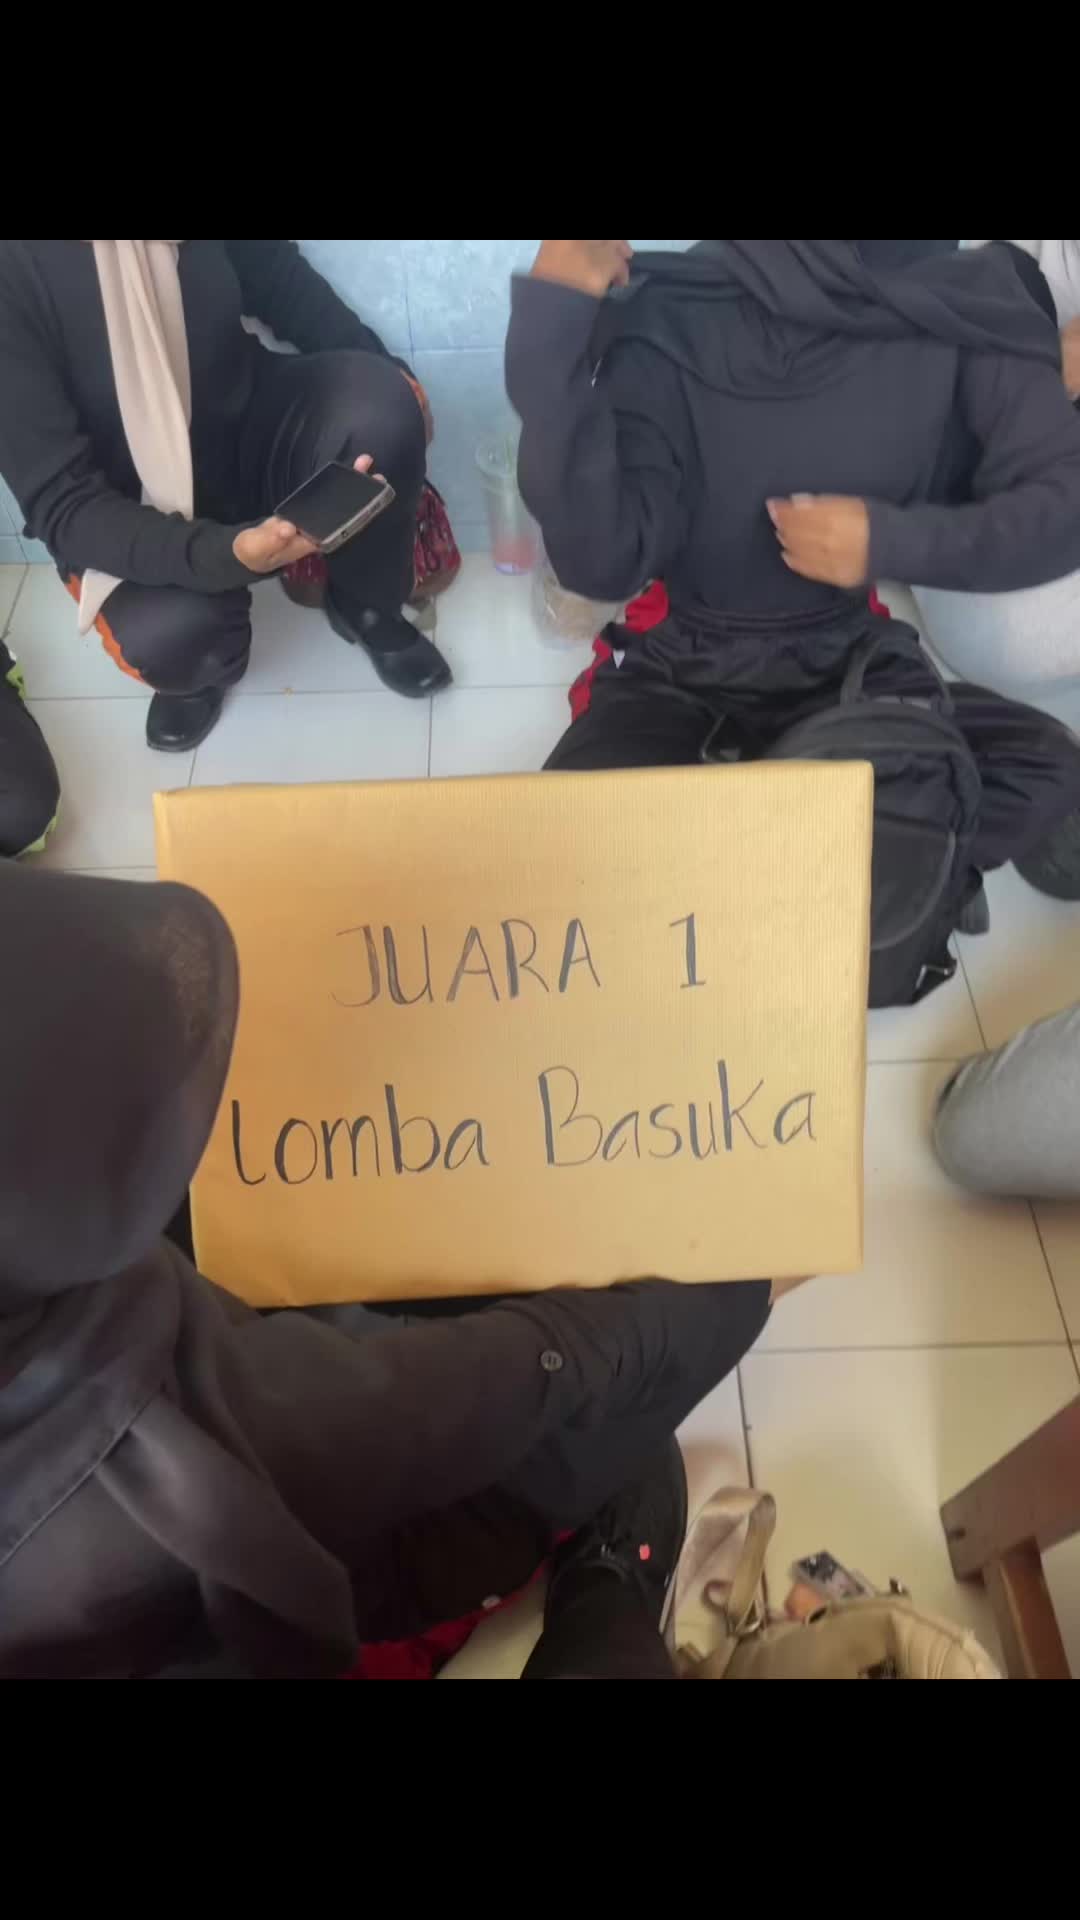 JUARA 1
Lomba Basuka